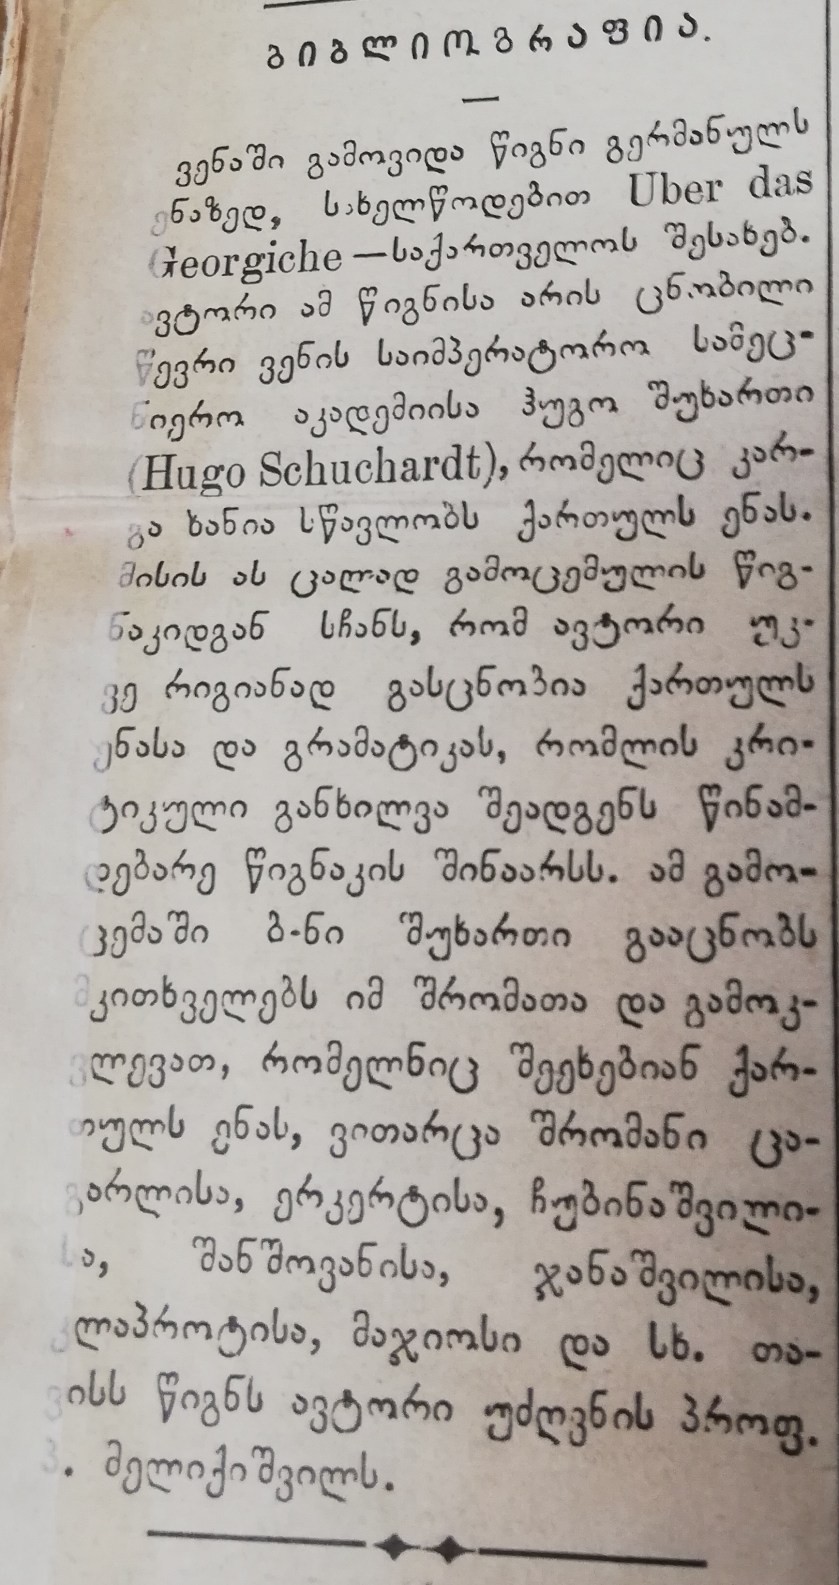 ბიბლიოგრაფია.
ვენაში გამოვიდა წიგნი გერმანულს
ენაზედ, სახელწოდებით Uber das
Georgiche—საქართველოს შესახებ.
ავტორი ამ წიგნისა არის ცნობილი
წევრი ვენის საიმპერატორო სამეც-
ნიერო აკადემიისა ჰუგო შუხართი
(Hugo Schuchardt), რომელიც კარ-
გა ხანია სწავლობს ქართულს ენას.
მისის ას ცალად გამოცემულის წიგ-
ნაკიდგან სჩანს, რომ ავტორი უკ-
ვე რიგიანად გასცნობია ქართულს
ენასა და გრამატიკას, რომლის კრი-
ტიკული განხილვა შეადგენს წინამ-
დებარე წიგნაკის შინაარსს. ამ გამო-
ცემაში ბ-ნი შუხართი გააცნობს
მკითხველებს იმ შრომათა და გამოკ-
ვლევათ, რომელნიც შეეხებიან ქარ-
თულს ენას, ვითარცა შრომანი ცა-
გარლისა, ერკერტისა, ჩუბინაშვილი-
სა, შანშოვანისა, ჯანაშვილისა,
კლაპროტისა, მაჯიოსი და სხ. თა-
ვისს წიგნს ავტორი უძღვნის პროფ.
. მელიქიშვილს.